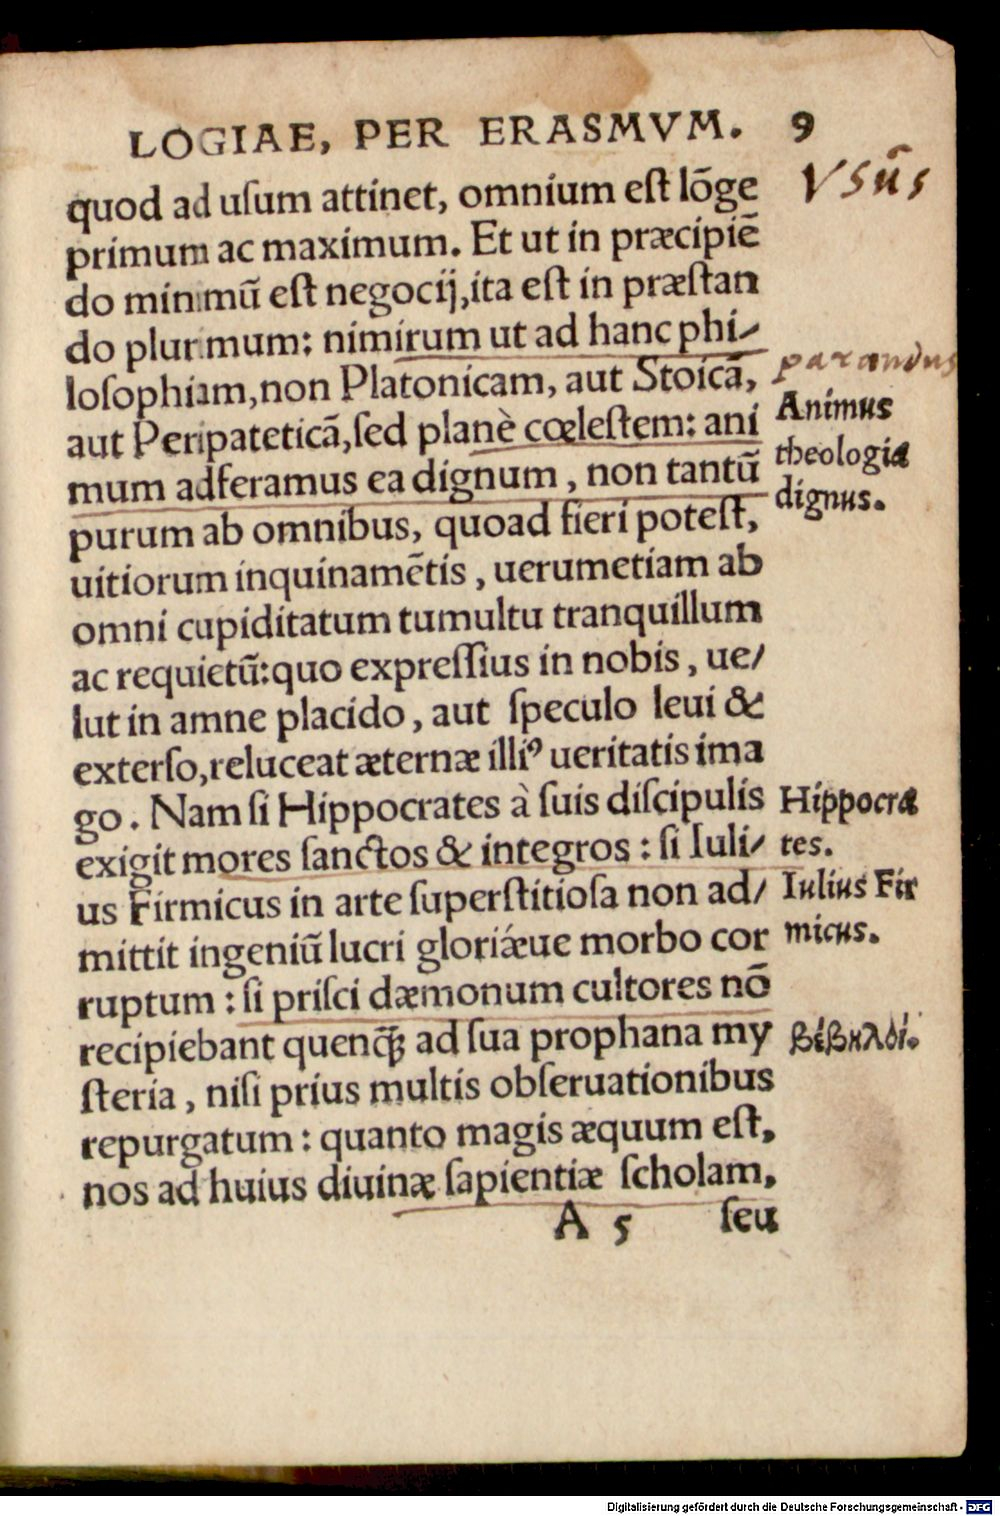 LOGIAE, PER ERASMVM. 9
quod ad uſum attinet, omnium eſt lõge
primum ac maximum. Et ut in præcipiē
do minimũ eſt negocij,ita eſt in præſtan
do plurimum: nimirum ut ad hanc phi/
loſophiam,non Platonicam, aut Stoicã,
aut Peripateticã,ſed planè cœleſtem: ani
mum adferamus ea dignum, non tantũ
purum ab omnibus, quoad fieri poteſt,
uitiorum inquinamētis, uerumetiam ab
omni cupiditatum tumultu tranquillum
ac requietũ:quo expreſſius in nobis, ue/
lut in amne placido, aut ſpeculo leui &
exterſo,reluceat æternæ illiꝰ ueritatis ima
go. Nam ſi Hippocrates à ſuis diſcipulis
exigit mores ſanctos & integros: ſi Iuli/
us Firmicus in arte ſuperſtitioſa non ad/
mittit ingeniũ lucri gloriǽue morbo cor
ruptum: ſi priſci dæmonum cultores nõ
recipiebant quenq̃ꝫ ad ſua prophana my
ſteria, niſi prius multis obſeruationibus
repurgatum: quanto magis æquum eſt,
nos ad huius diuinæ ſapientiæ ſcholam,
A 5 ſeu
Vsus
parandus
Animus
theologia
dignus.
Hippocra
tes.
Iulius Fir
micus.
βέβηλοί.
Digitalisierung gefördert durch die Deutsche Forschungsgemeinschaft - DFG